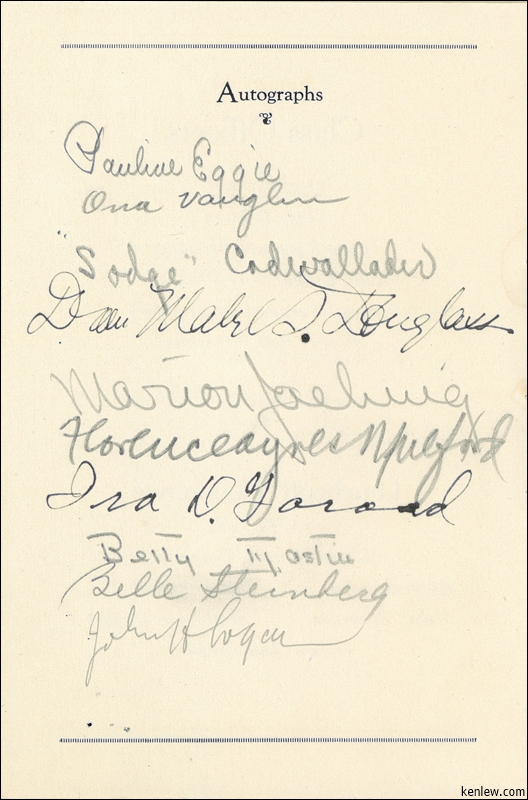 Autographs
Pauline Eggie
Ona Vaughn
"Sodge" Cadwallader
Dean Mabel S. Douglass
Marion Jaehnig
Florence Ayres Mulford
Ira D. Garard
Betty Mostiu
Belle Steinberg
John H Logan
kenlew.com